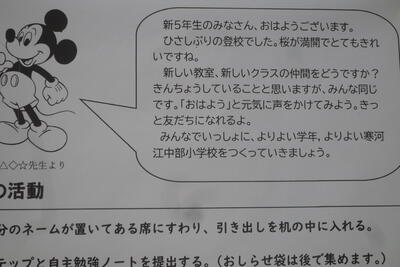 新5年生のみなさん、おはようございます。
ひさしぶりの登校でした。桜が満開でとてもきれ
いですね。
新しい教室、新しいクラスの仲間をどうですか？
きんちょうしていることと思いますが、みんな同じ
です。「おはよう」と元気に声をかけてみよう。きっ
と友だちになれるよ。
みんなでいっしょに、よりよい学年、よりよい寒河
江中部小学校をつくっていきましょう。
△◇☆先生より
の活動
分のネームが置いてある席にすわり、引き出しを机の中に入れる。
テップと自主勉強ノートを提出する。(おしらせ袋は後で集めます。)